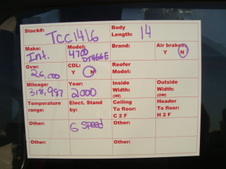 Stock#: TCC1416
Body Length: 14
Make: Int.
Model: 4700 DT466E
Brand:
Air brakes: Y N
Gvw: 26,000
CDL: Y N
Reefer Model:
Mileage: 318,987
Year: 2000
Inside Width:
Outside Width:
Temperature range:
Elect. Stand by:
Ceiling To floor: C 2 F
Header To floor: H 2 F
Other:
Other: 6 Speed
Other:
Other: